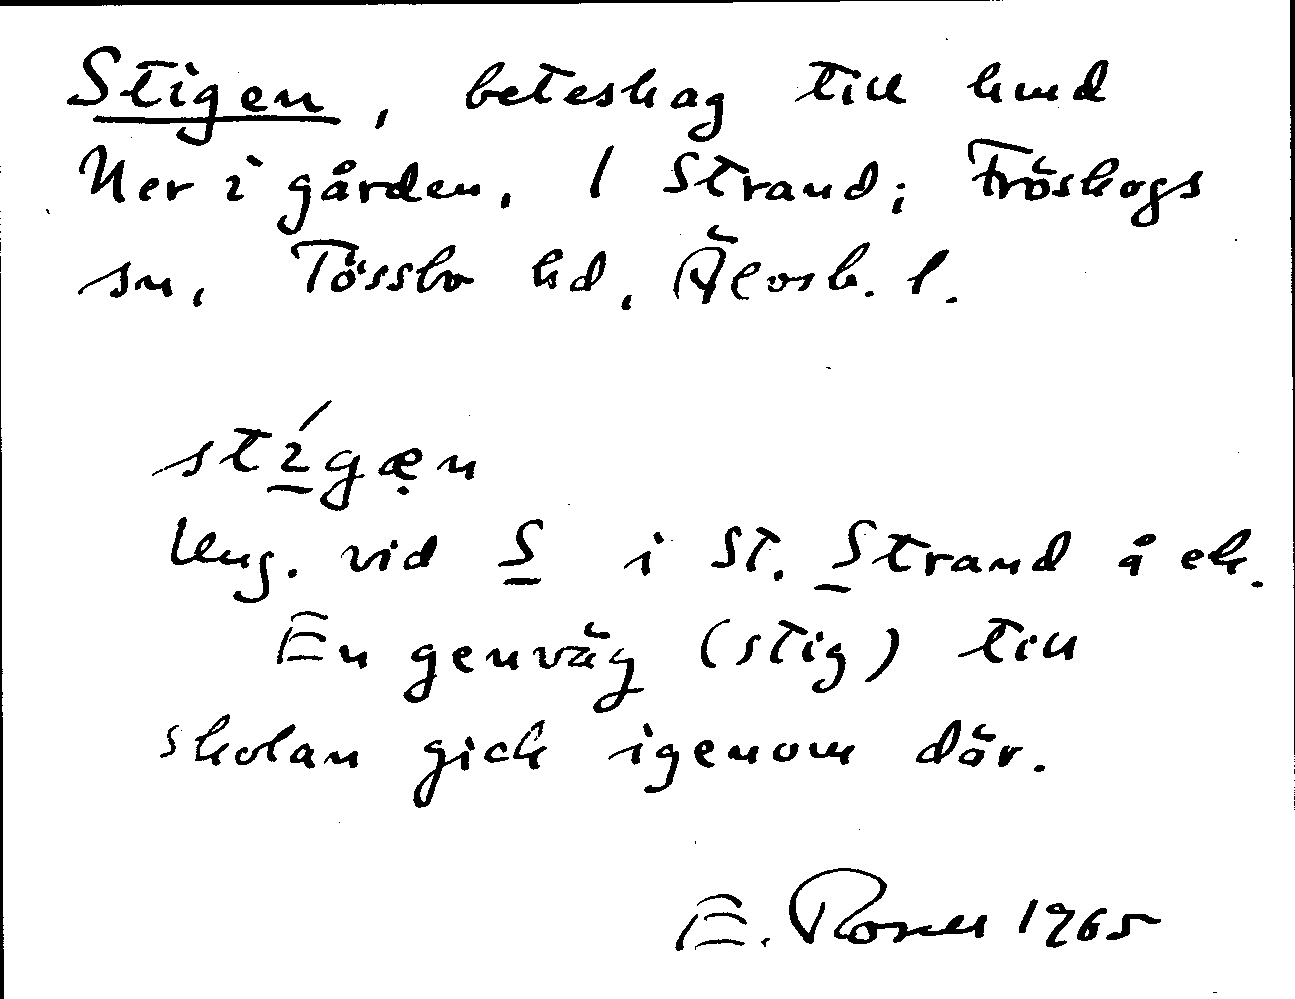 Stigen, beteshag till hmd
Ner i gården, 1 Strand; Fröskogs
sn, Tössbo hd, Älvsb. l.
stígæ̣n
Ung. vid S i St. Strand å ek.
En genväg (stig) till
skolan gick igenom där.
E. Rosell 1965